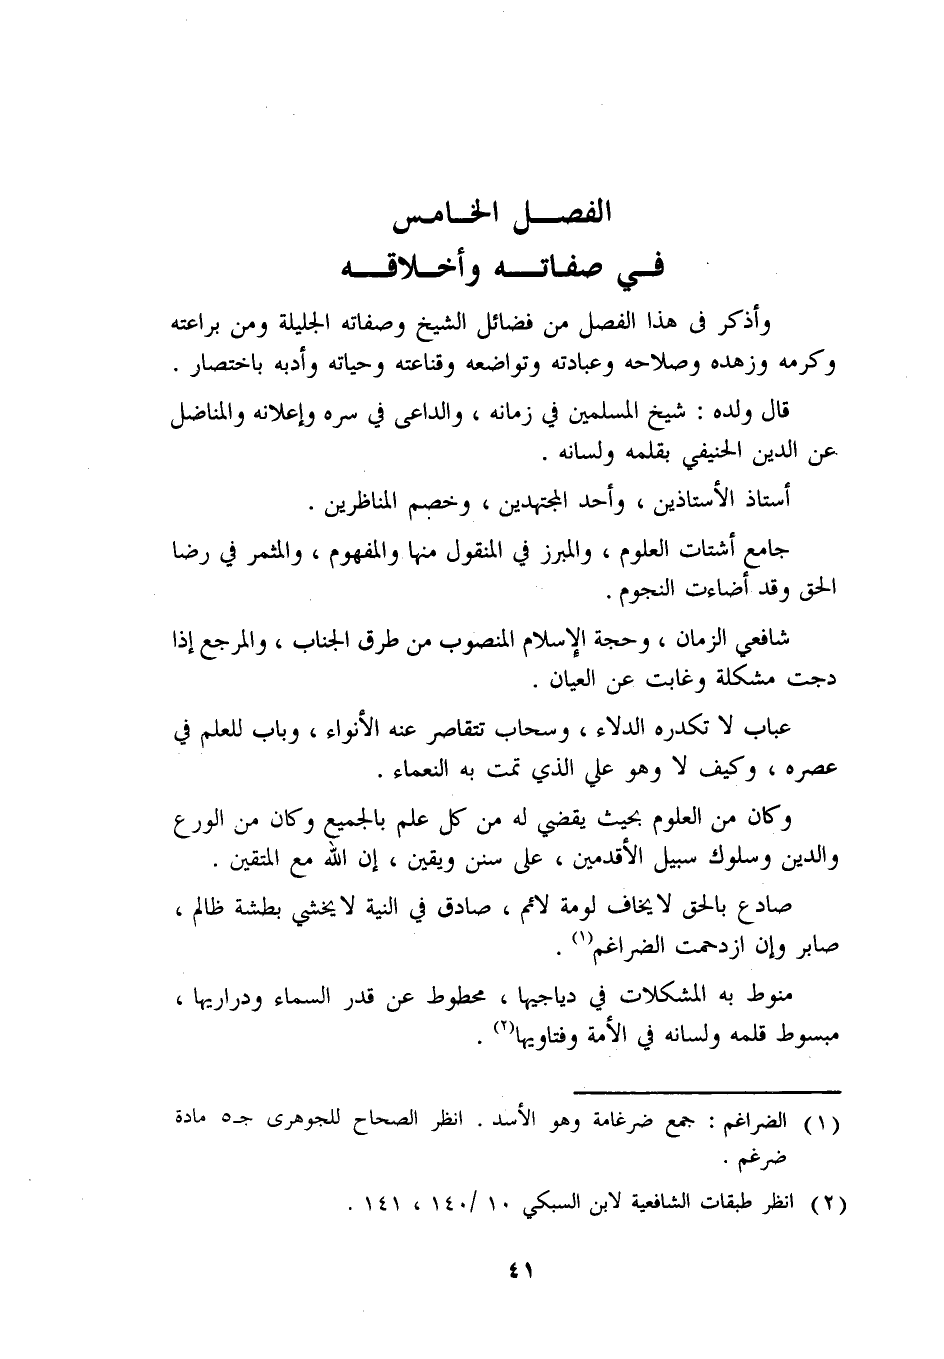 الفصل الخامس
في صفاته وأخلاقه
وأذكر فى هذا الفصل من فضائل الشيخ وصفاته الجليلة ومن براعته
وكرمه وزهده وصلاحه وعبادته وتواضعه وقناعته وحياته وأدبه باختصار .
قال ولده : شيخ المسلمين في زمانه ، والداعى في سره وإعلانه والمناضل
عن الدين الحنيفي بقلمه ولسانه .
أستاذ الأستاذين ، وأحد المجتهدين ، وخصم المناظرين .
جامع أشتات العلوم ، والمبرز في المنقول منها والمفهوم ، والمثمر في رضا
الحق وقد أضاءت النجوم .
شافعي الزمان ، وحجة الإسلام المنصوب من طرق الجناب ، والمرجع إذا
دجت مشكلة وغابت عن العيان .
عباب لا تكدره الدلاء ، وسحاب تتقاصر عنه الأنواء ، وباب للعلم في
عصره ، وكيف لا وهو علي الذي تمت به النعماء .
وكان من العلوم بحيث يقضي له من كل علم بالجميع وكان من الورع
والدين وسلوك سبيل الأقدمين ، على سنن ويقين ، إن الله مع المتقين .
صادع بالحق لا يخاف لومة لائم ، صادق في النية لا يخشي بطشة ظالم ،
صابر وإن ازدحمت الضراغم(١) .
منوط به المشكلات في دياجيها ، محطوط عن قدر السماء ودراريها ،
مبسوط قلمه ولسانه في الأمة وفتاويها(٢) .
(١) الضراغم : جمع ضرغامة وهو الأسد . انظر الصحاح للجوهرى جـ٥ مادة
ضرغم .
(٢) انظر طبقات الشافعية لابن السبكي ١٠ /١٤٠ ، ١٤١ .
٤١